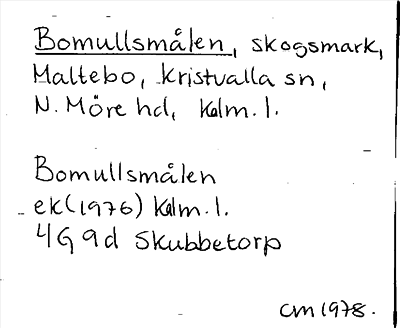 Bomullsmålen, skogsmark,
Maltebo, Kristvalla sn,
N. Möre hd, Kalm. l.
Bomullsmålen
ek (1976) Kalm. l.
4G 9d Skubbetorp
CM 1978.